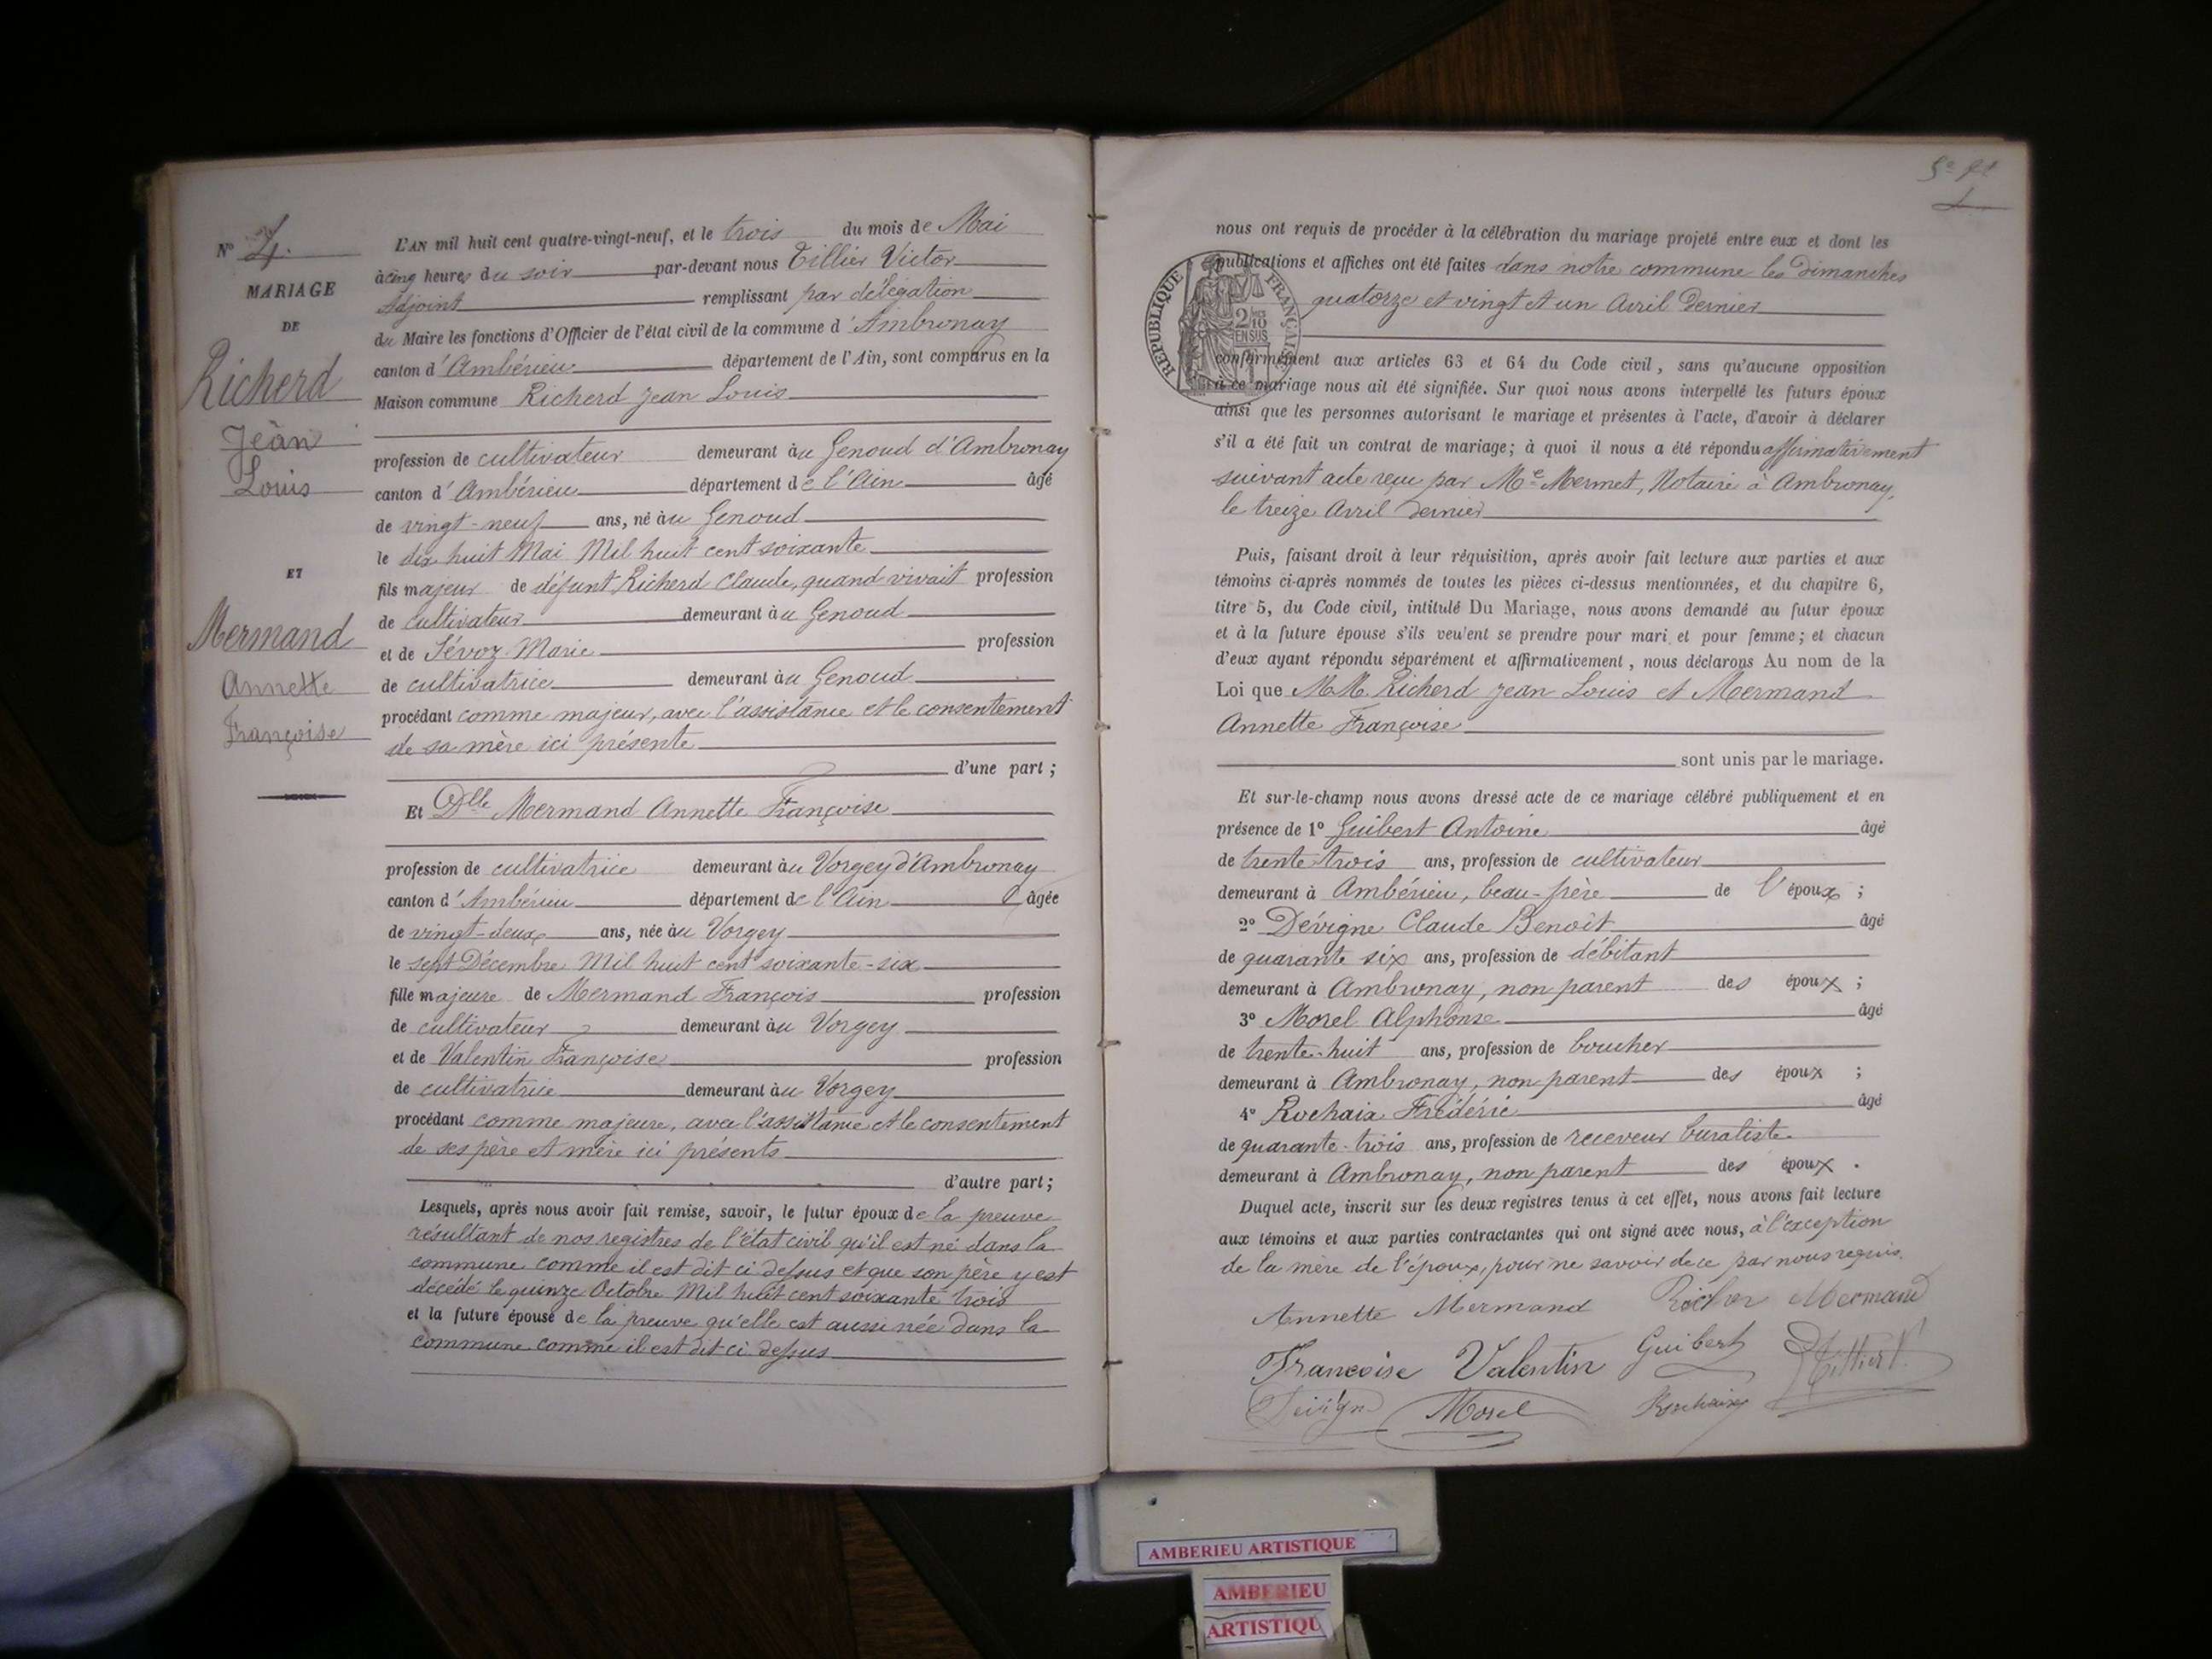 N° 4.
MARIAGE
DE
Richerd
Jean
Louis
ET
Mermand
Annette
Françoise
L'AN mil huit cent quatre-vingt-neuf, et le trois du mois de Mai
à cinq heures du soir par-devant nous Tillier Victor
Adjoint remplissant par délégation
du Maire les fonctions d'Officier de l'état civil de la commune d'Ambronay
canton d'Ambérieu département de l'Ain, sont comparus en la
Maison commune Richerd Jean Louis
profession de cultivateur demeurant au Genoud d'Ambronay
canton d'Ambérieu département de l'Ain âgé
de vingt-neuf ans, né au Genoud
le dix huit Mai Mil huit cent soixante
fils majeur de défunt Richerd Claude, quand vivait profession
de cultivateur demeurant au Genoud
et de Sévoz Marie profession
de cultivatrice demeurant au Genoud
procédant comme majeur, avec l'assistance et le consentement
de sa mère ici présente
d'une part ;
Et Dlle Mermand Annette Françoise
profession de cultivatrice demeurant au Vorgey d'Ambronay
canton d'Ambérieu département de l'Ain âgée
de vingt-deux ans, née au Vorgey
le sept Décembre Mil huit cent soixante-six
fille majeure de Mermand François profession
de cultivateur demeurant au Vorgey
et de Valentin Françoise profession
de cultivatrice demeurant au Vorgey
procédant comme majeure, avec l'assistance et le consentement
de ses père et mère ici présents
d'autre part ;
Lesquels, après nous avoir fait remise, savoir, le futur époux de la preuve
résultant de nos registres de l'état civil qu'il est né dans la
commune comme il est dit ci dessus et que son père y est
décédé le quinze Octobre Mil huit cent soixante trois
et la future épouse de la preuve qu'elle est aussi née dans la
commune comme il est dit ci dessus
nous ont requis de procéder à la célébration du mariage projeté entre eux et dont les
publications et affiches ont été faites dans notre commune les dimanches
quatorze et vingt et un Avril dernier
RÉPUBLIQUE FRANÇAISE
2/10 EN SUS
conformément aux articles 63 et 64 du Code civil, sans qu'aucune opposition
à ce mariage nous ait été signifiée. Sur quoi nous avons interpellé les futurs époux
ainsi que les personnes autorisant le mariage et présentes à l'acte, d'avoir à déclarer
s'il a été fait un contrat de mariage ; à quoi il nous a été répondu affirmativement
suivant acte reçu par Me Mermet, Notaire à Ambronay,
le treize Avril dernier
Puis, faisant droit à leur réquisition, après avoir fait lecture aux parties et aux
témoins ci-après nommés de toutes les pièces ci-dessus mentionnées, et du chapitre 6,
titre 5, du Code civil, intitulé Du Mariage, nous avons demandé au futur époux
et à la future épouse s'ils veulent se prendre pour mari et pour femme ; et chacun
d'eux ayant répondu séparément et affirmativement, nous déclarons Au nom de la
Loi que M.M. Richerd Jean Louis et Mermand
Annette Françoise
sont unis par le mariage.
Et sur-le-champ nous avons dressé acte de ce mariage célébré publiquement et en
présence de 1° Guibert Antoine âgé
de trente trois ans, profession de cultivateur
demeurant à Ambérieu, beau-frère de l'époux ;
2° Dévigne Claude Benoît âgé
de quarante six ans, profession de débitant
demeurant à Ambronay, non parent des époux ;
3° Morel Alphonse âgé
de trente-huit ans, profession de boucher
demeurant à Ambronay, non parent des époux ;
4° Rochaix Frédéric âgé
de quarante-trois ans, profession de receveur buraliste
demeurant à Ambronay, non parent des époux .
Duquel acte, inscrit sur les deux registres tenus à cet effet, nous avons fait lecture
aux témoins et aux parties contractantes qui ont signé avec nous, à l'exception
de la mère de l'époux, pour ne savoir de ce par nous requis.
Annette Mermand Richer Mermand
Francoise Valentin Guibert Tillier V.
Dévigne Morel Rochaix
AMBERIEU ARTISTIQUE
AMBERIEU
ARTISTIQU